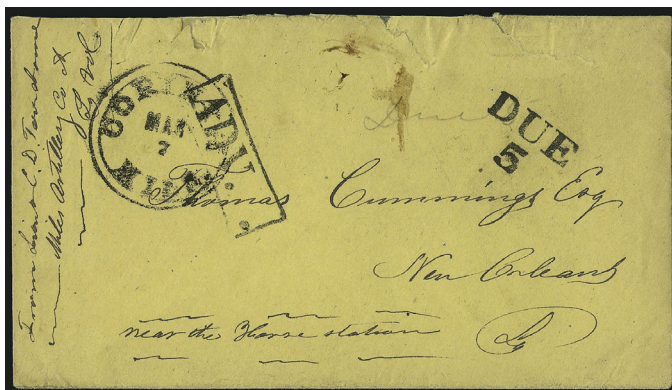 From Lieut C. D. Townsend
Miles Artillery Co A
La Vol
CORINTH
MAR
7
MISS.
ADV.
Due
DUE
5
Thomas Cummings Esq
New Orleans
near the Horse station
La